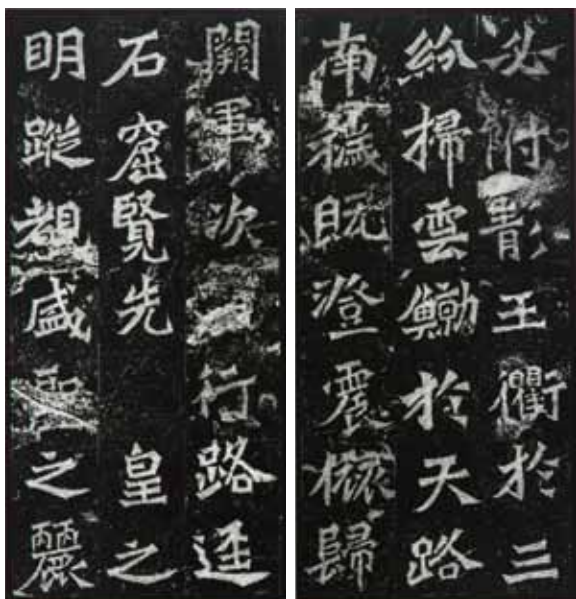 必附王衢於三
紛掃雲鯨於天路
南穢既澄震旅歸
闕軍次行路逕
石窟覽先皇之
明蹤覩盛聖之麗